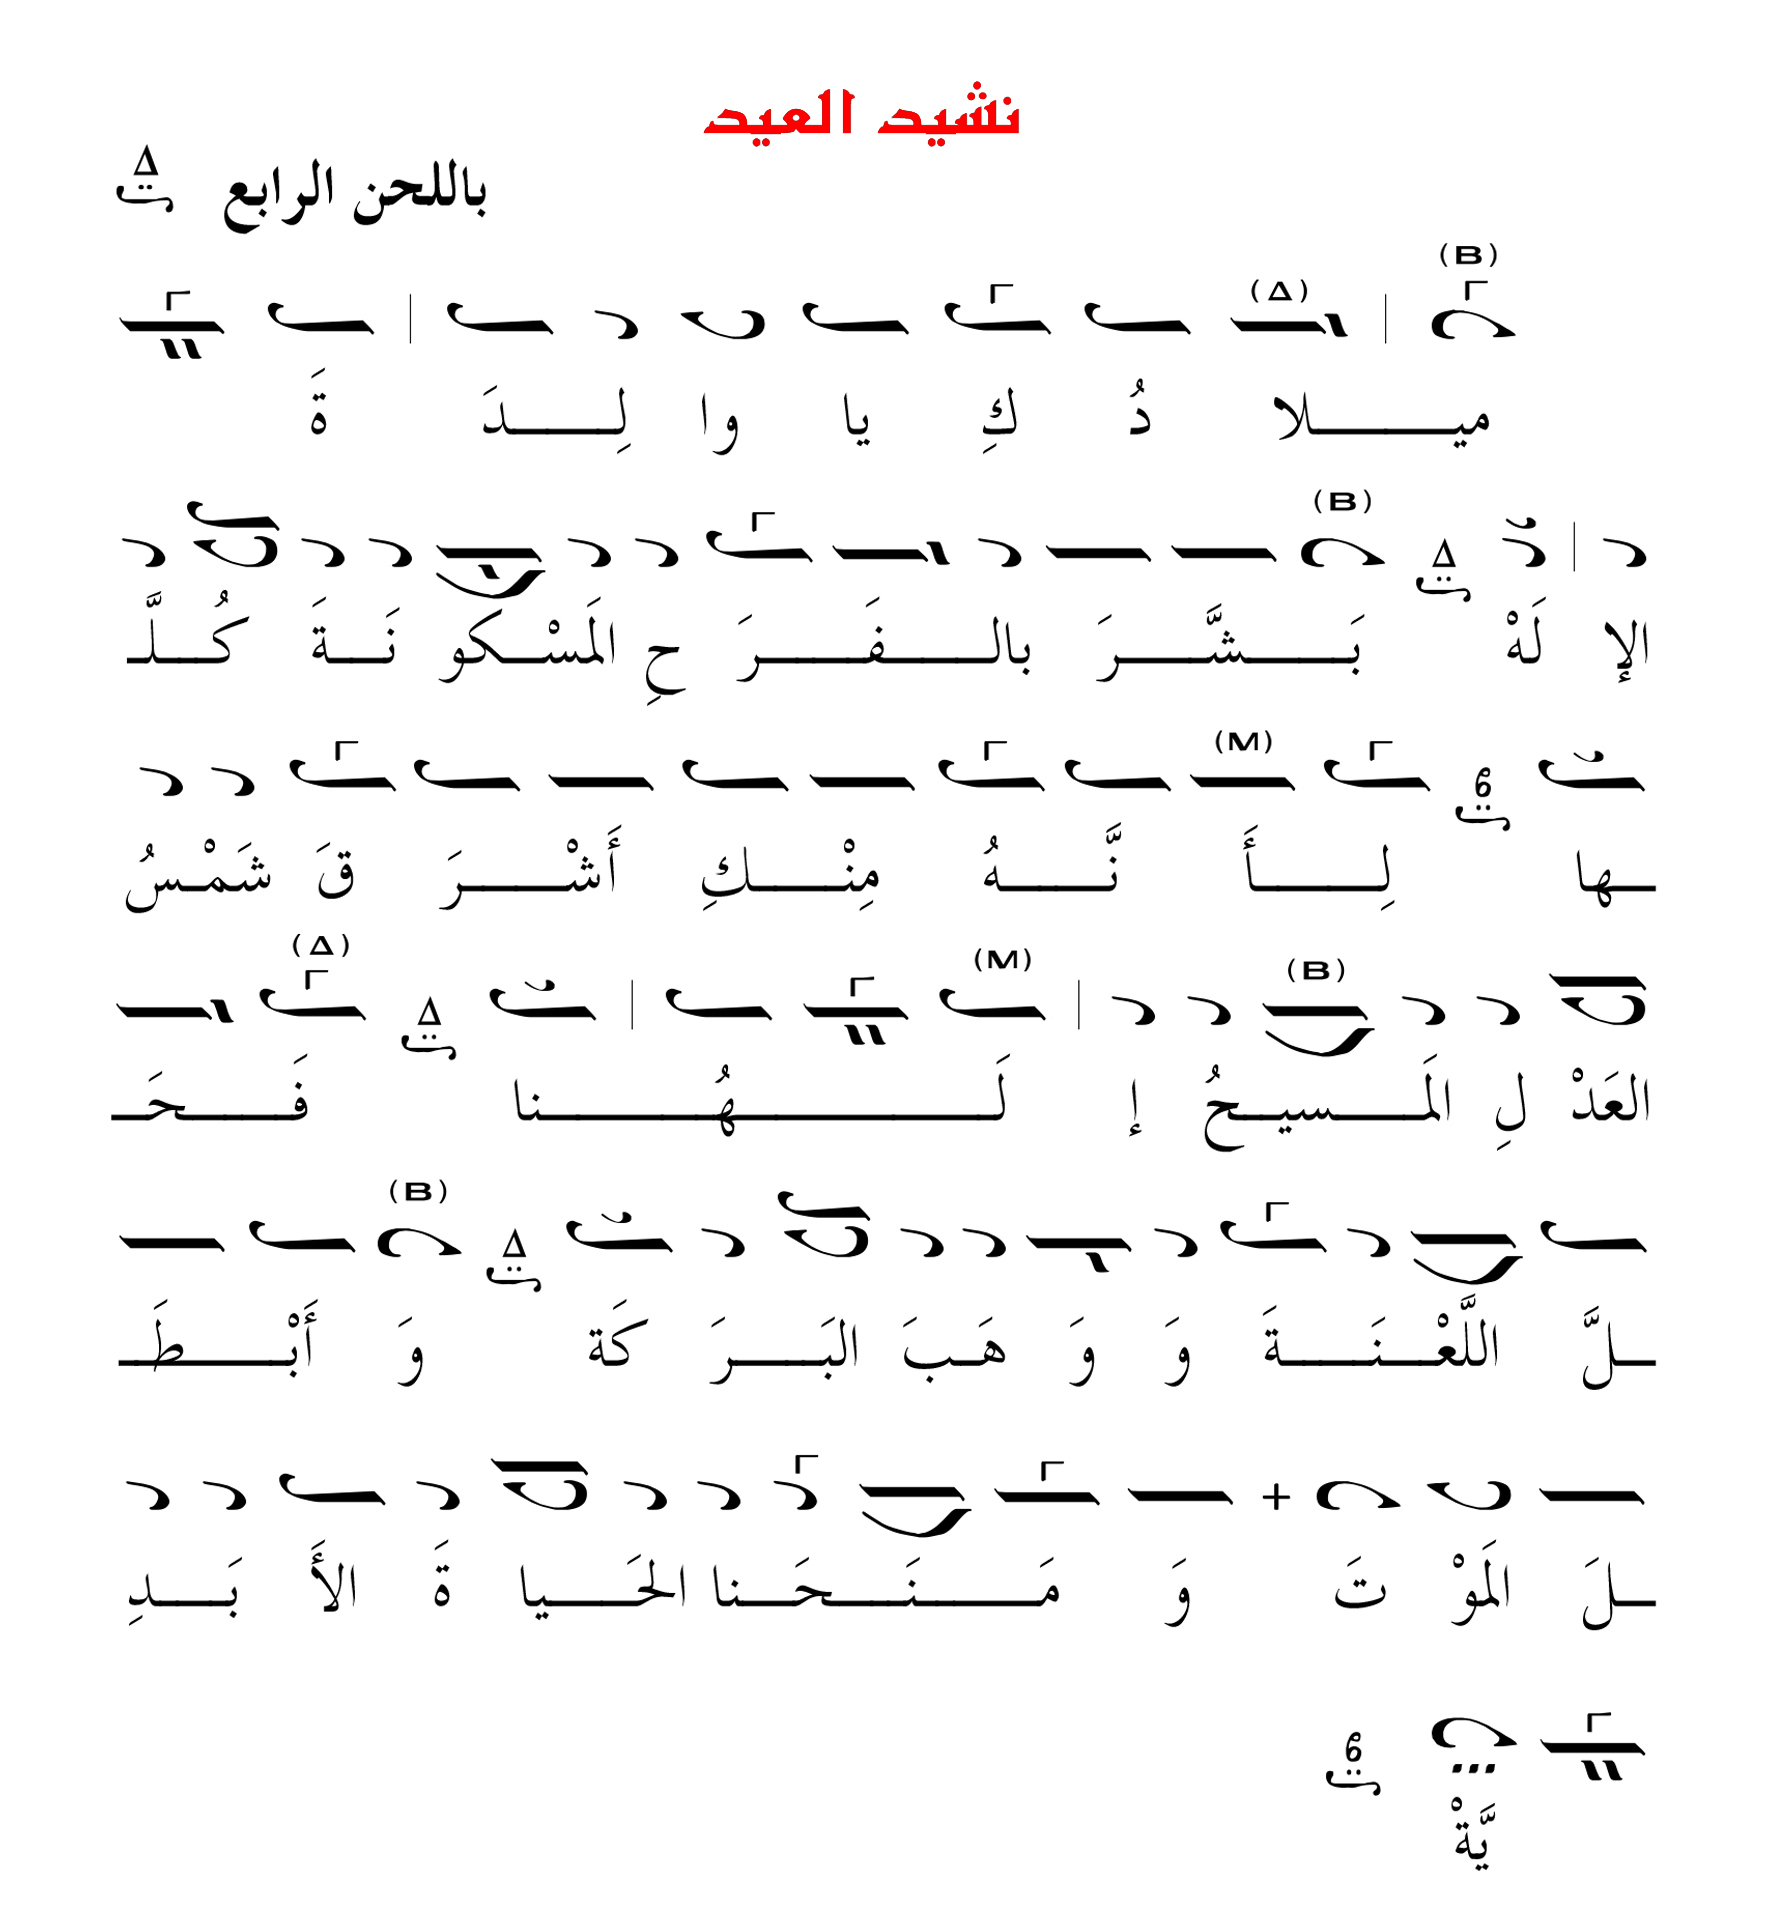 نشيد العيد
باللحن الرابع
ميـلادُكِ يا والِـدَةَ
الإلَهْ بَـشَّـرَ بالـفَـرَحِ المَسْـكونَـةَ كُـلَّـ
ـها لِـأَنَّـهُ مِنْـكِ أَشْـرَقَ شَمْـسُ
العَدْلِ المَـسيـحُ إلَـهُـنا فَـحَـ
ـلَّ اللَّعْـنَـةَ وَوَهَـبَ البَـرَكَة وَأَبْـطَـ
ـلَ المَوْتَ وَمَـنَـحَـنا الحَـياةَ الأَبَـدِ
يَّةْ